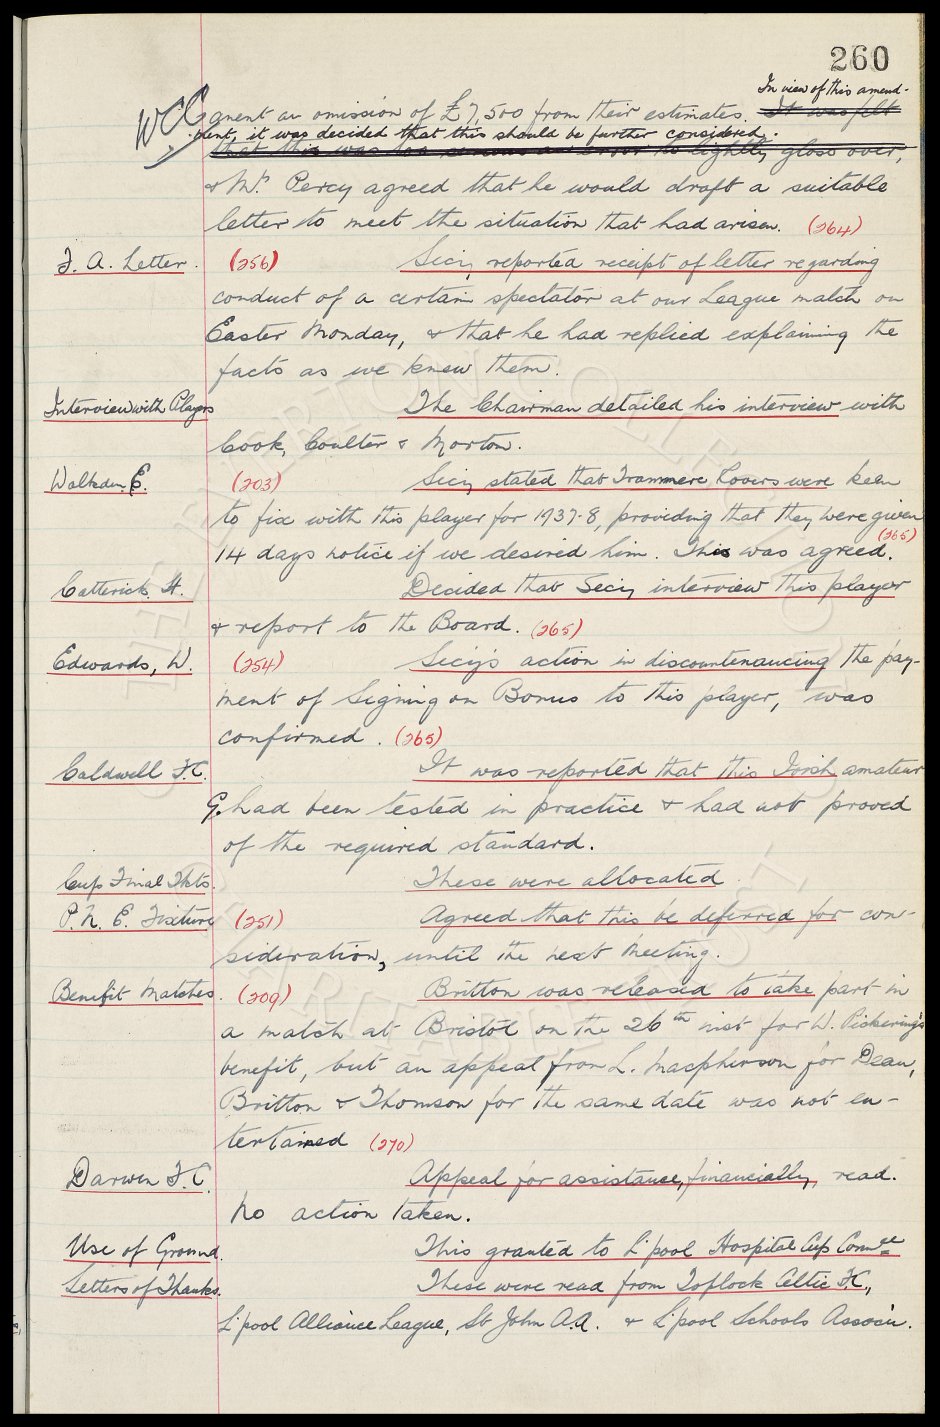 260
In view of this amend-
WCC gment an omission of £7,500 from their estimates. It was felt
ment, it was decided that this should be further considered.
that this was too serious an error to lightly gloss over,
& Mr. Percy agreed that he would draft a suitable
letter to meet the situation that had arisen. (264)
F. A. Letter. (256) Secy, reported receipt of letter regarding
conduct of a certain spectator at our League match on
Easter Monday, & that he had replied explaining the
facts as we knew them.
Interview with Players The Chairman detailed his interview with
Cook, Coulter & Morton.
Walkden E. (203) Secy stated that Tranmere Rovers were keen
to fix with this player for 1937-8, providing that they were given
14 days notice if we desired him. This was agreed. (265)
Catterick H. Decided that Secy, interview this player
& report to the Board. (265)
Edwards, W. (254) Secy's action in discountenancing the pay-
ment of Signing on Bonus to this player, was
confirmed. (265)
Caldwell F.C. It was reported that this Irish amateur
G. had been tested in practice & had not proved
of the required standard.
Cup Final Tkts. These were allocated.
P. N. E. Fixture (251) Agreed that this be deferred for con-
sideration, until the next Meeting.
Benefit Matches. (209) Britton was released to take part in
a match at Bristol on the 26th inst for W. Pickering's
benefit, but an appeal from L. Macpherson for Dean,
Britton & Thomson for the same date was not en-
tertained (270)
Darwen F.C. Appeal for assistance, financially, read.
No action taken.
Use of Ground. This granted to L'pool Hospital Cup Comee
Letters of Thanks. These were read from Toflock Celtic F.C.,
L'pool Alliance League, St John A.A. & L'pool Schools Associn.